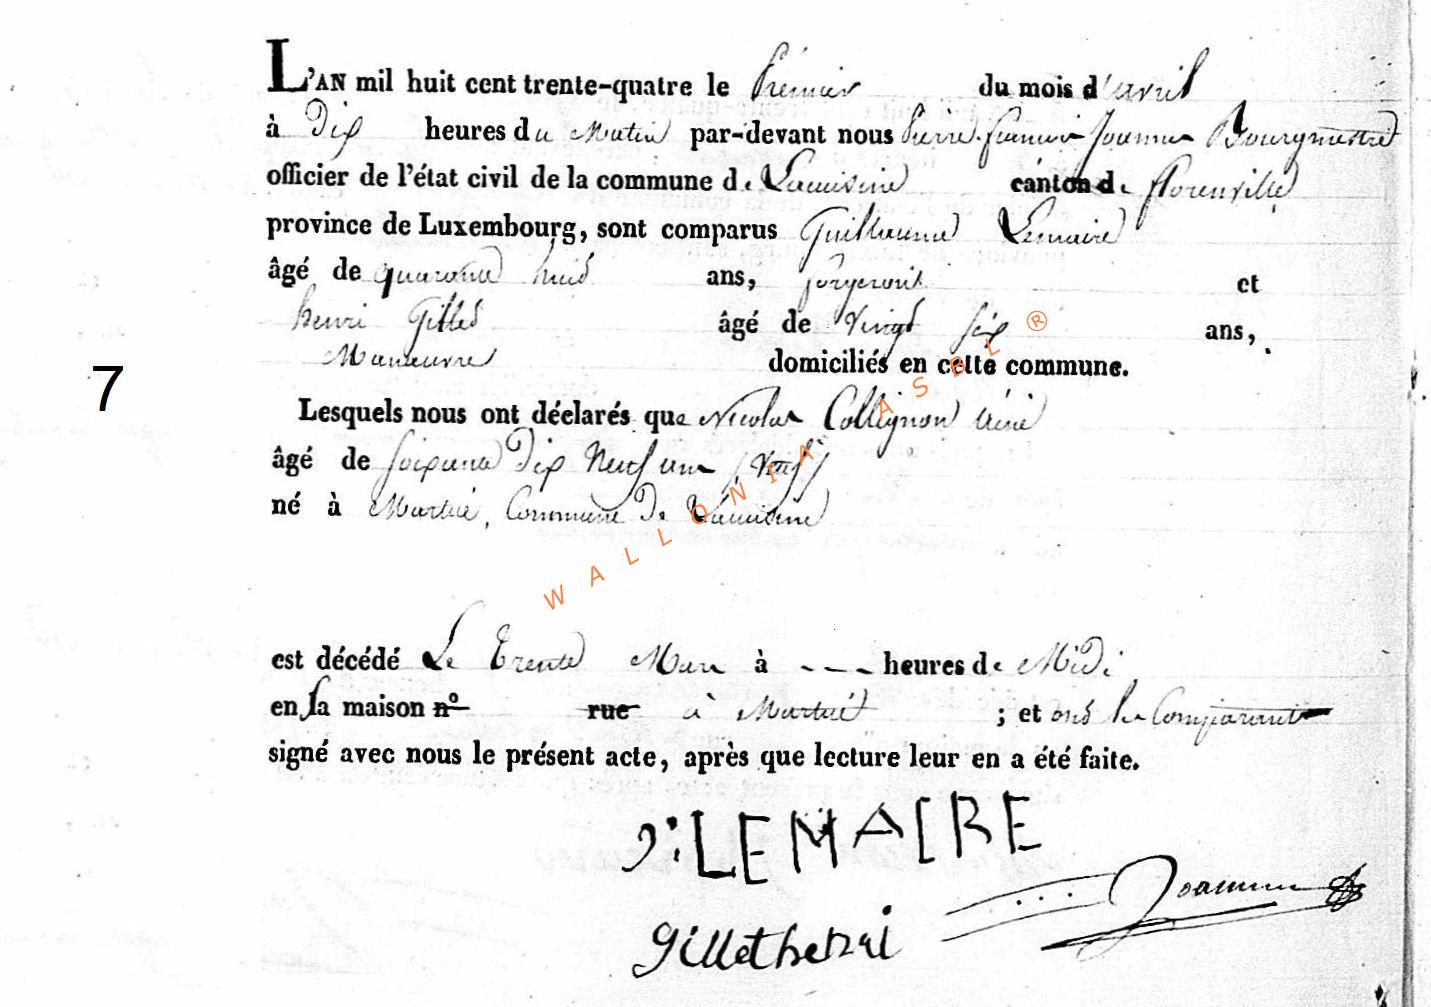 L'AN mil huit cent trente-quatre le Premier du mois d'avril
à Dix heures du Matin par-devant nous Pierre francois Joannes Bourgmestre
officier de l'état civil de la commune de Lacuisine canton de florenville
province de Luxembourg, sont comparus Guillaume Lemaire
âgé de quarante huit ans, forgeront et
henri Gillet âgé de vingt six ans,
Maneuvre domiciliés en cette commune.
7
Lesquels nous ont déclarés que Nicolas Collignon
âgé de soixante Dix Neuf ans, veuf
né à Martué, Commune De Lacuisine
est décédé Le Trente Mars à ---- heures de Midi
en sa maison n° rue à Martué ; et ont les Comparants
signé avec nous le présent acte, après que lecture leur en a été faite.
LEMAIRE
Joannes
gillet henri
WALLONIA ASBL ®